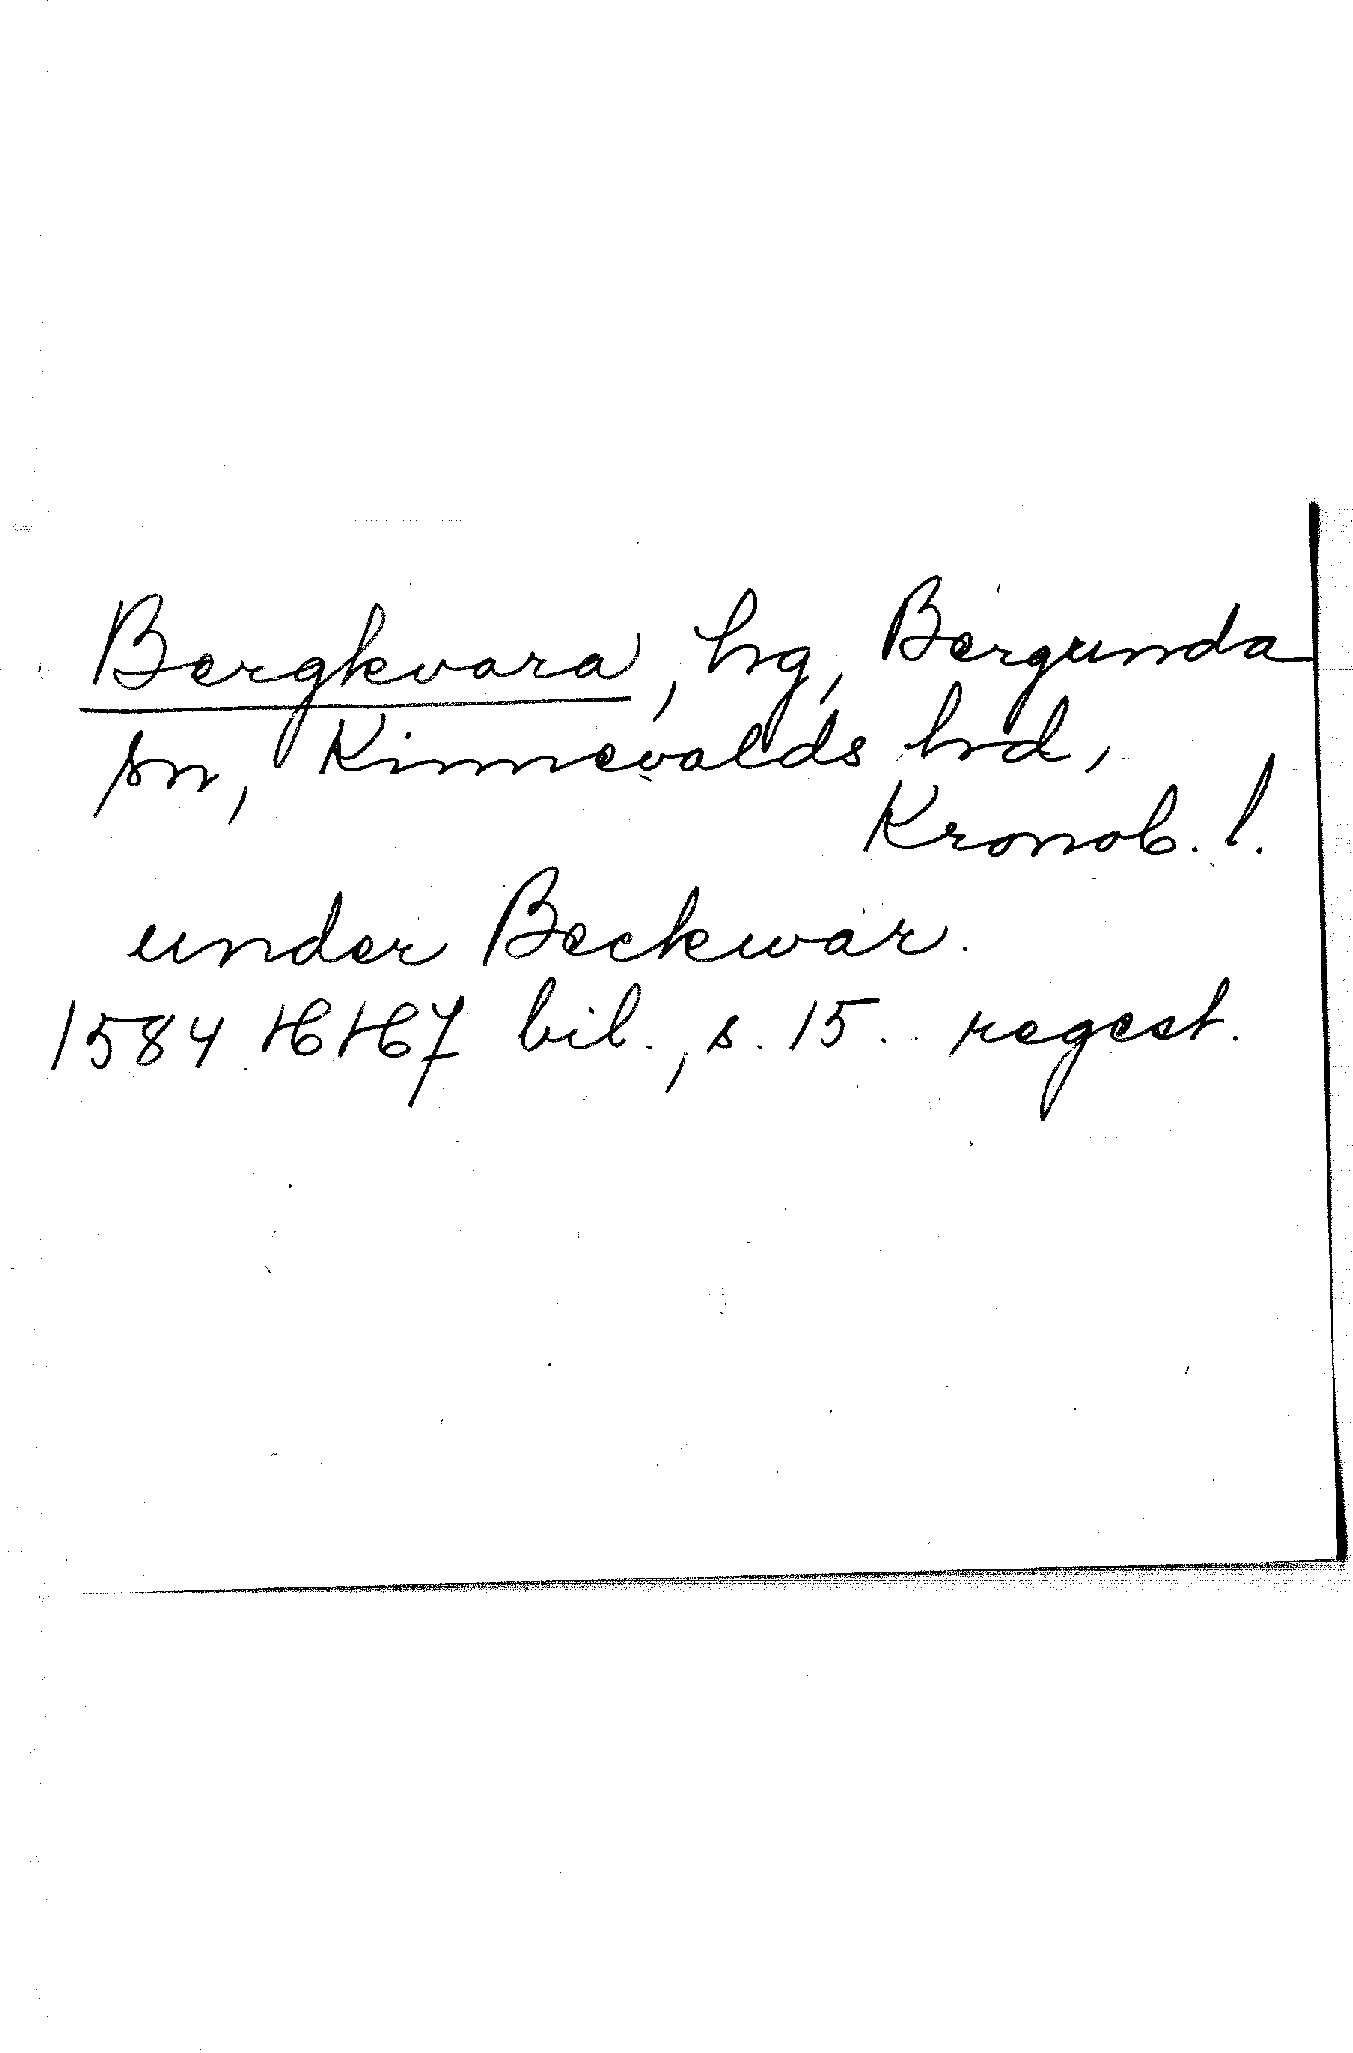 Bergkvara, hg, Bergunda
sn, Kinnevalds hd,
Kronob. l.
under Beckwar.
1584 HH 7 bil., s. 15. regest.